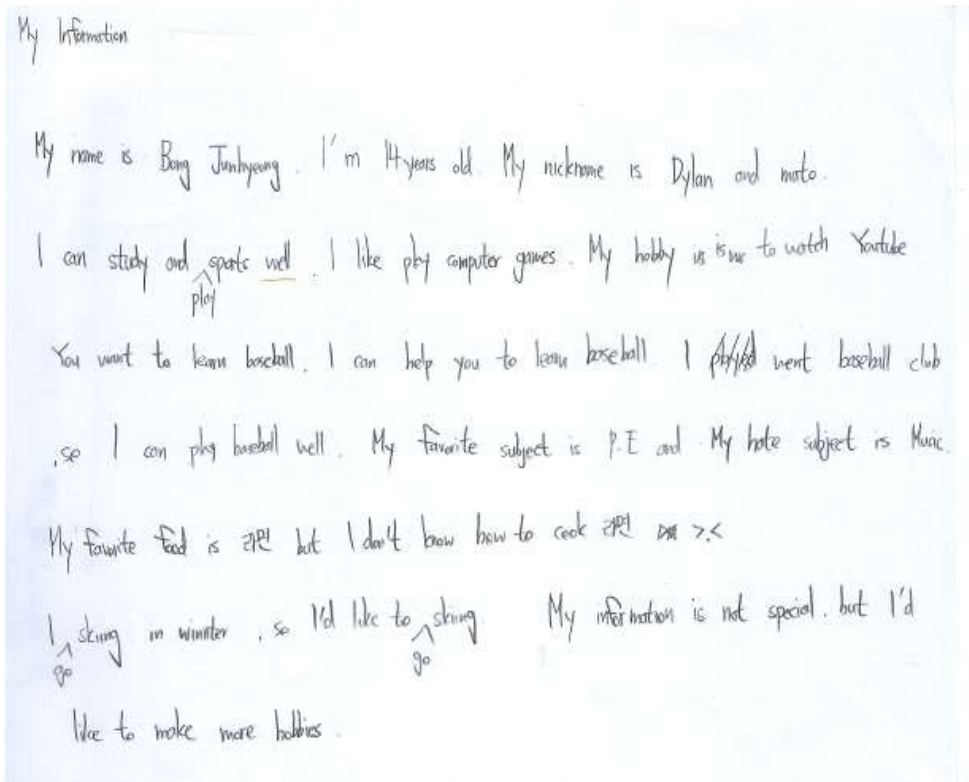 My Information
My name is Bong Junhyeong. I'm 14 years old. My nickname is Dylan and moto.
I can study and play sports well. I like play computer games. My hobby is to watch Youtube
You want to learn baseball. I can help you to learn baseball. I went baseball club
,so I can play baseball well. My favorite subject is P.E and My hate subject is Music.
My favorite food is 라면 but I don't know how to cook 라면 >.<
I go skiing in winter, so I'd like to go skiing My information is not special. but I'd
like to make more hobbies.